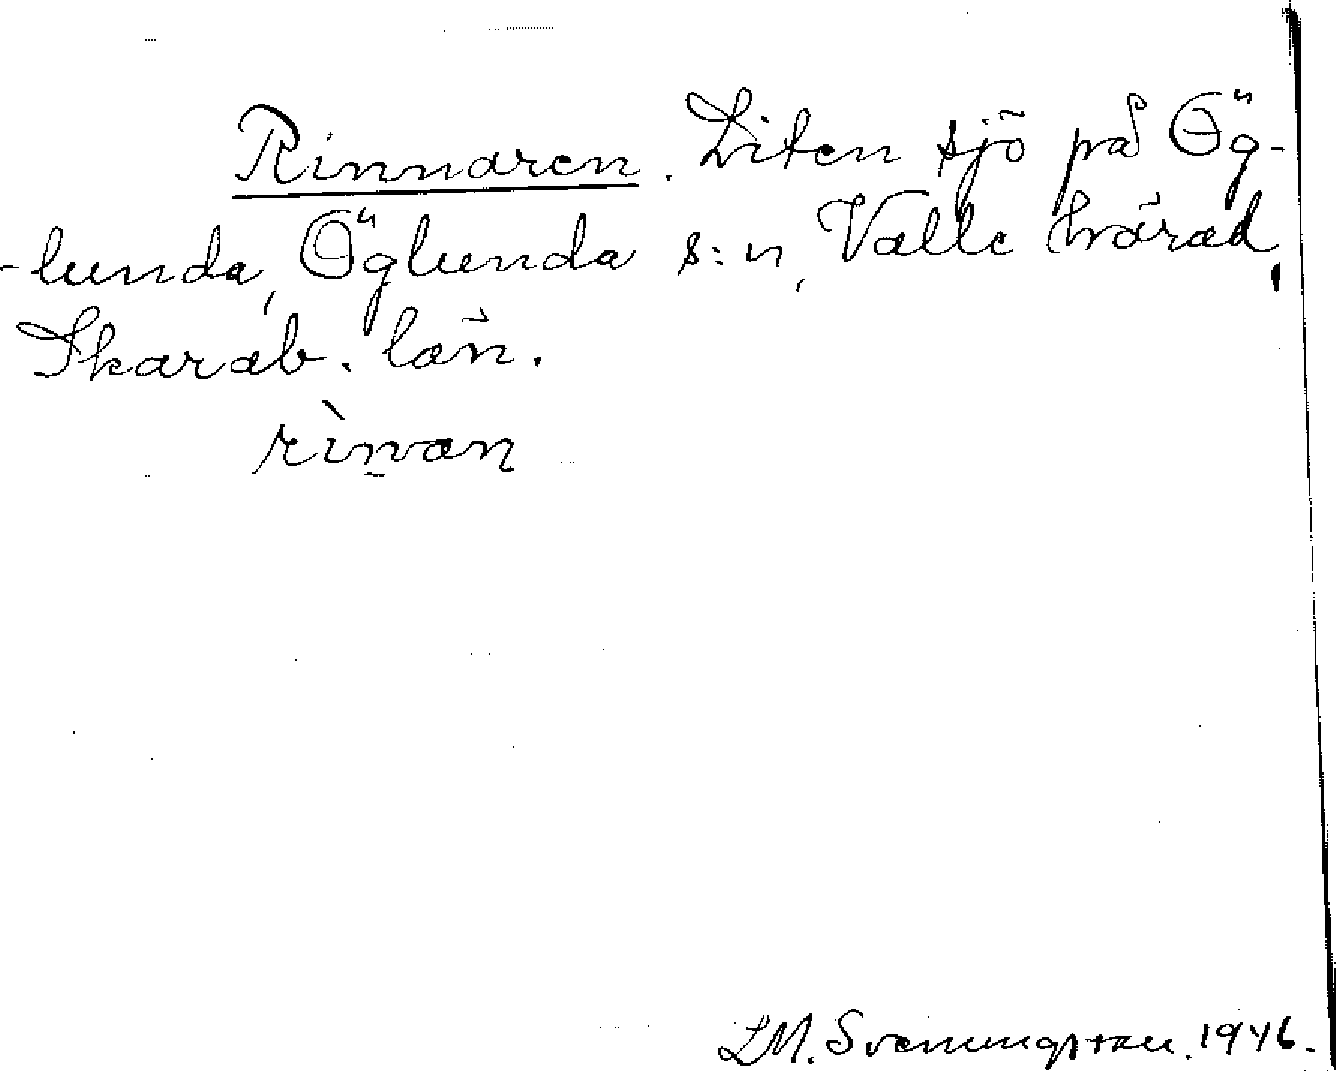 Rinnaren. Liten sjö på Ög-
-lunda, Öglunda s:n, Valle härad,
Skarab. län.
rìnan
LM. Svenungsson. 1946.